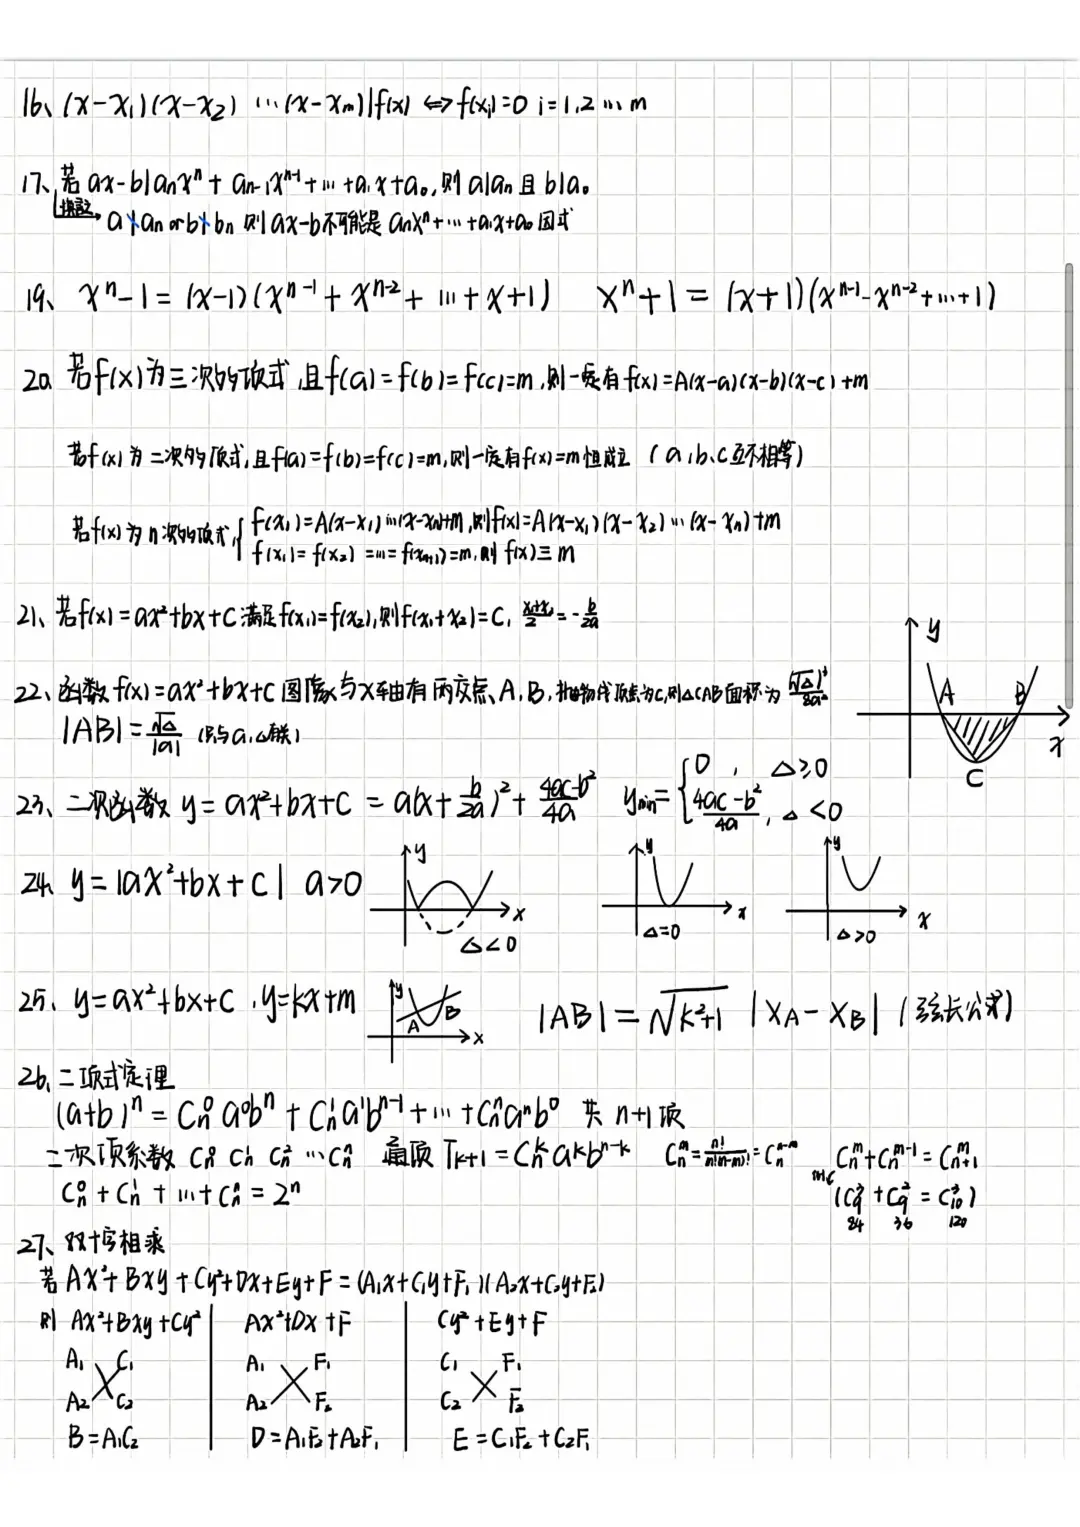 16、(x-x₁)(x-x₂) …(x-xₘ)|f(x) ⇔ f(xᵢ)=0 i=1,2…m
17、若 ax-b|aₙxⁿ+aₙ₋₁xⁿ⁻¹+…+a₁x+a₀,则 a|aₙ 且 b|a₀
a∤aₙ or b∤bₙ 则 ax-b不可能是 aₙxⁿ+…+a₁x+a₀ 因式
19、 xⁿ-1=(x-1)(xⁿ⁻¹+xⁿ⁻²+…+x+1) xⁿ+1=(x+1)(xⁿ⁻¹-xⁿ⁻²+…+1)
20 若f(x)为三次多项式,且f(a)=f(b)=f(c)=m,则一定有f(x)=A(x-a)(x-b)(x-c)+m
若f(x)为二次多项式,且f(a)=f(b)=f(c)=m,则一定有f(x)=m恒成立 (a,b、c互不相等)
若f(x)为n次多项式,{ f(x₁)=A(x-x₁)…(x-xₙ)+m,则f(x)=A(x-x₁)(x-x₂)…(x-xₙ)+m
f(x₁)=f(x₂)=…=f(xₙ₊₁)=m,则 f(x)≡m
21、若f(x)=ax²+bx+c满足f(x₁)=f(x₂),则f(x₁+x₂)=c, (x₁+x₂)/2=-b/2a
22、函数f(x)=ax²+bx+c图像与x轴有两交点、A,B,抛物线顶点为c,则△CAB面积为 (√Δ)³/8a²
|AB|=√Δ/|a| (只与a,Δ有关)
y
A B
x
C
23、二次函数 y=ax²+bx+c=a(x+b/2a)²+(4ac-b²)/4a yₘᵢₙ={ 0, Δ≥0
(4ac-b²)/4a, Δ<0
24、y=|ax²+bx+c| a>0
y x Δ<0
y x Δ=0
y x Δ>0
25、y=ax²+bx+c,y=kx+m
y A B x
|AB|=√(k²+1) |x_A-x_B| (弦长公式)
26、二项式定理
(a+b)ⁿ=Cₙ⁰a⁰bⁿ+Cₙ¹a¹bⁿ⁻¹+…+Cₙⁿaⁿb⁰ 共 n+1项
二次项系数 Cₙ⁰ Cₙ¹ Cₙ²…Cₙⁿ 通项 Tₖ₊₁=Cₙᵏaᵏbⁿ⁻ᵏ Cₙᵐ=n!/m!(n-m)!=Cₙⁿ⁻ᵐ Cₙᵐ+Cₙᵐ⁻¹=Cₙ₊₁ᵐ
Cₙ⁰+Cₙ¹+…+Cₙⁿ=2ⁿ (C₉³+C₉²=C₁₀³)
84 36 120
27、双十字相乘
若 Ax²+Bxy+Cy²+Dx+Ey+F=(A₁x+C₁y+F₁)(A₂x+C₂y+F₂)
则 Ax²+Bxy+Cy² Ax²+Dx+F Cy²+Ey+F
A₁ C₁ A₁ F₁ C₁ F₁
A₂ C₂ A₂ F₂ C₂ F₂
B=A₁C₂ D=A₁F₂+A₂F₁ E=C₁F₂+C₂F₁